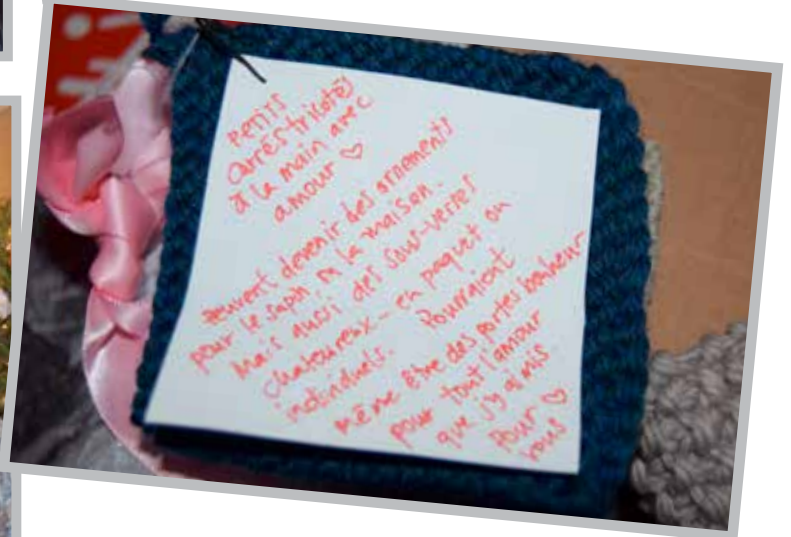 Petits
carrés tricotés
à la main avec
amour ♡
Peuvent devenir des ornements
pour le sapin ou la maison.
Mais aussi des sous-verres
chaleureux – en paquet ou
individuels. Pourraient
même être des portes bonheur
pour tout l'amour
que j'y ai mis
Pour ♡
vous